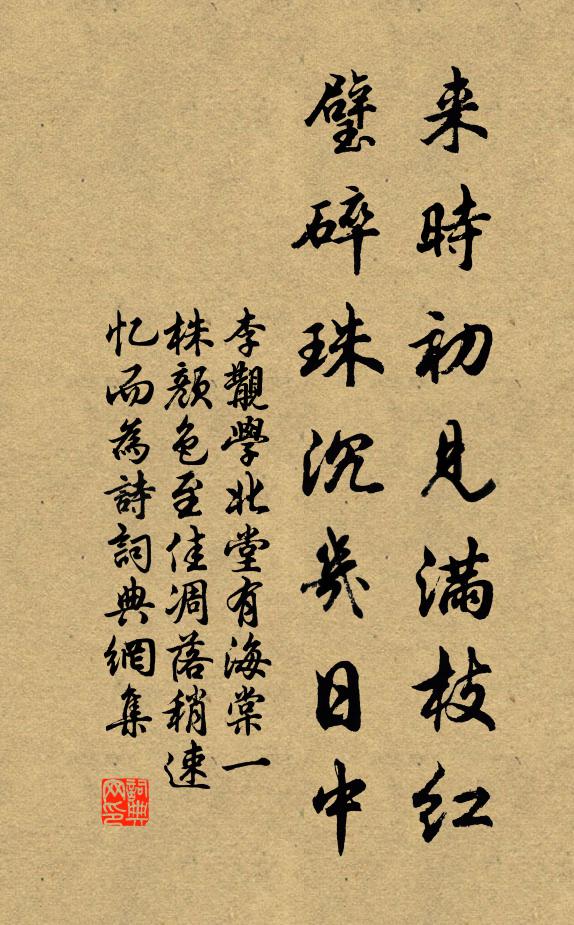 来時初見滿枝紅
璧碎珠沉幾日中
李觀學北堂有海棠一
株顏色至佳凋落稍速
忆而為詩詞典網集
詞典
网印